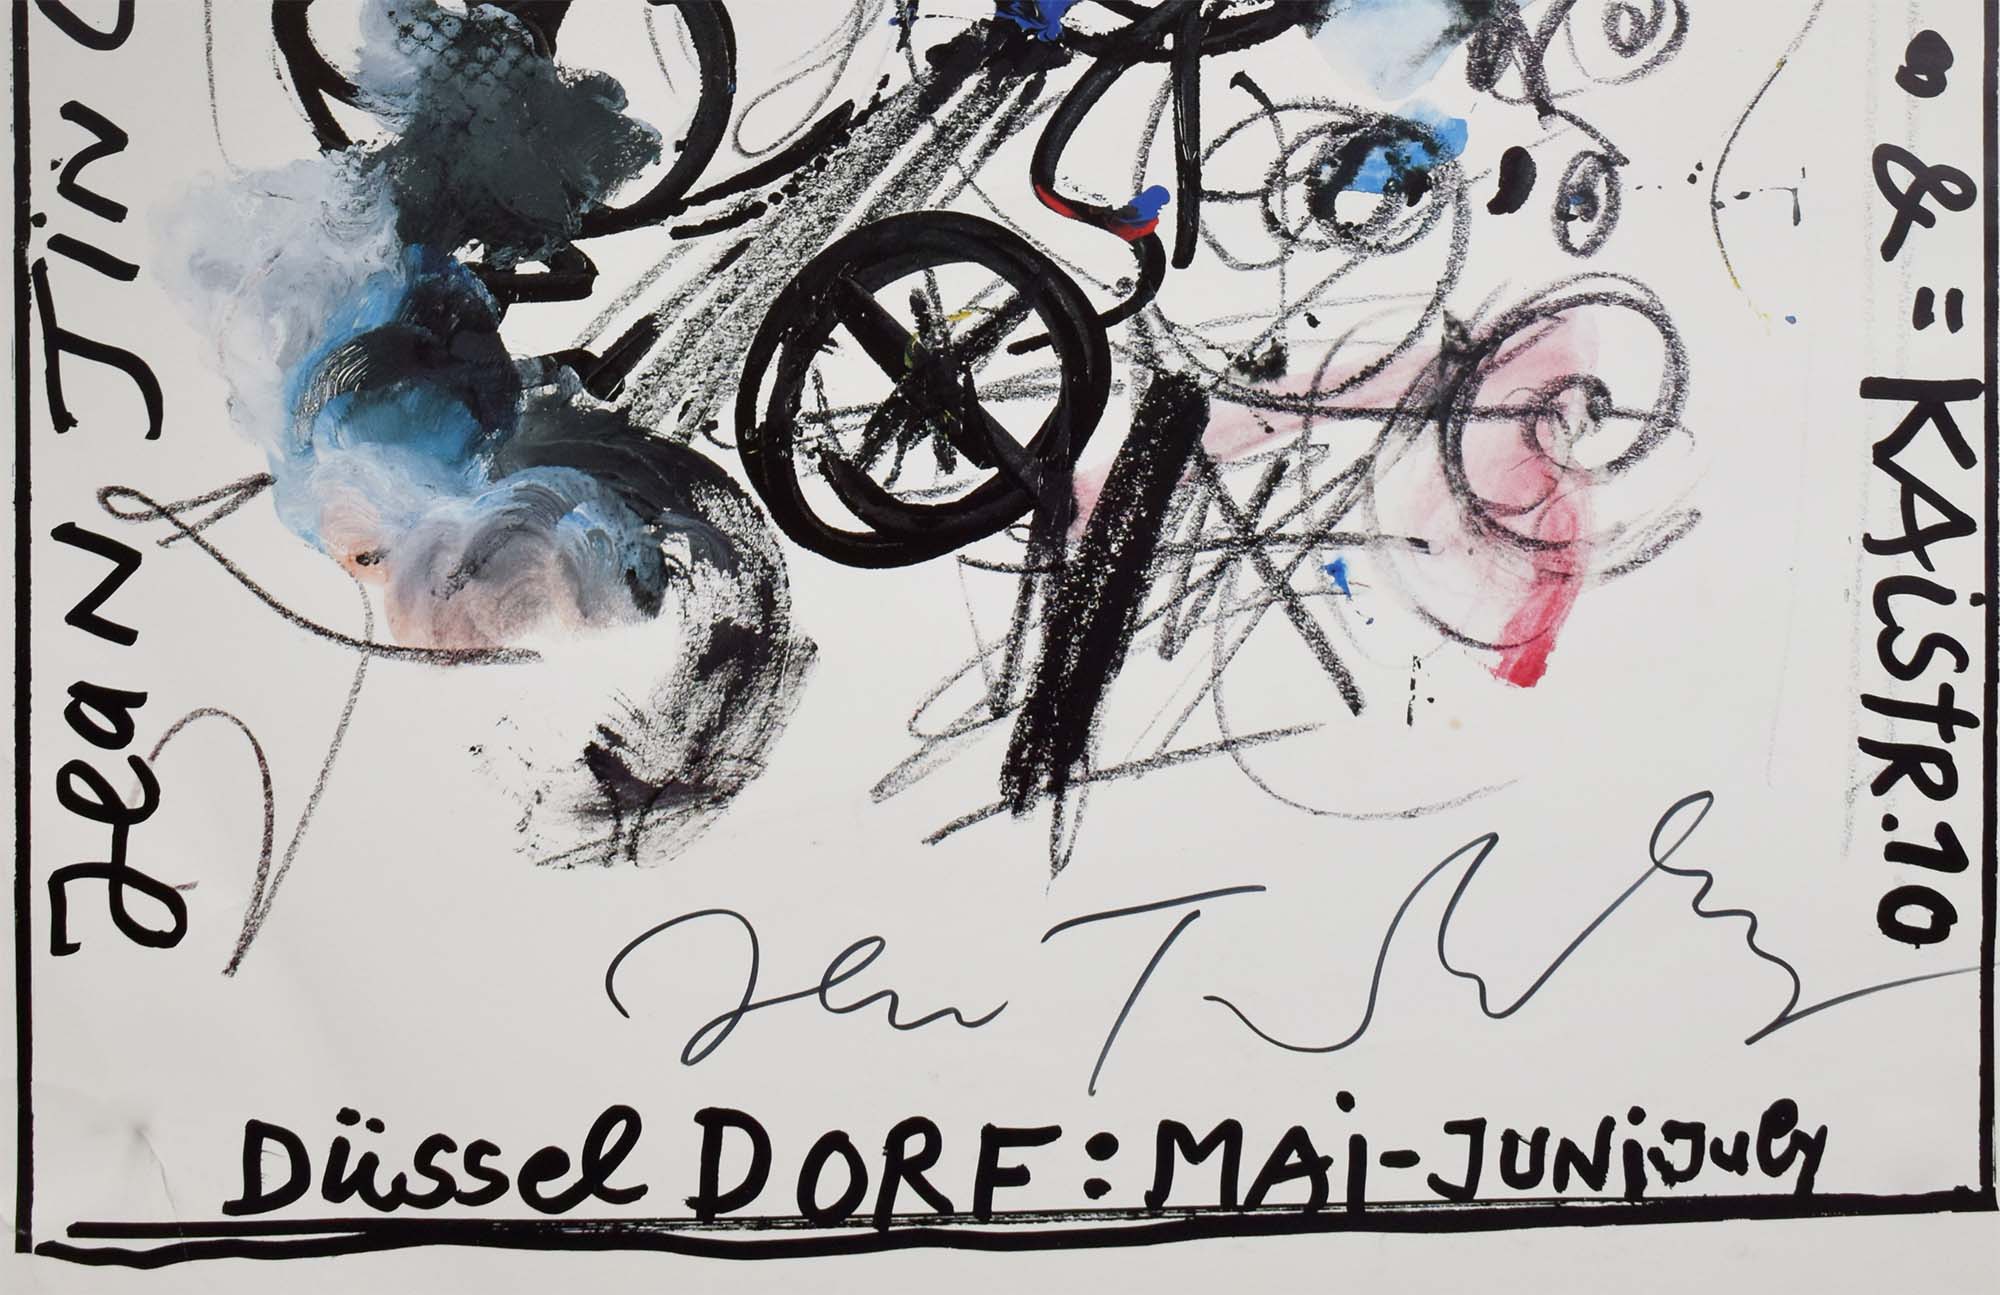 Jean Tin
& = KAiSTR.10
Jean T
DüsselDORF: MAi-JUNiJuly